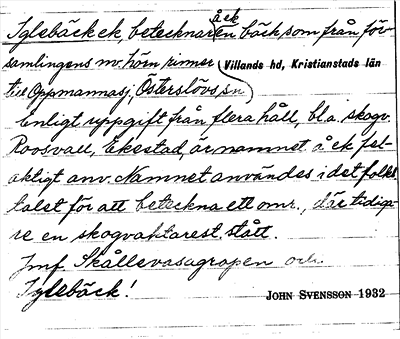 Iglebäck ek, betecknar å ek en bäck som från för-
samlingens nv. hörn rinner (Villands hd, Kristianstads län
till Oppmannasj, Österslövs sn)
Enligt uppgift från flera håll, bl.a. skogv.
Roosvall, Ekestad, är namnet å ek fel-
aktigt anv. Namnet användes i det folkl.
talet för att beteckna ett omr., där tidiga-
re en skogvaktarest. stått.
Jmf. Skållevasagropen och
Iglebäck!
JOHN SVENSSON 1932